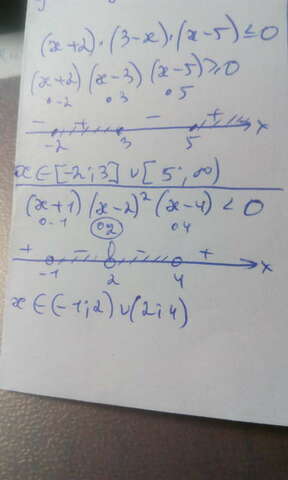 (x+2)·(3-x)·(x-5)≤0
(x+2)(x-3)(x-5)≥0
-2 3 5
- + - +
-2 3 5 x
x∈[-2;3]∪[5;∞)
(x+1)(x-2)²(x-4)<0
-1 2 4
+ - - +
-1 2 4 x
x∈(-1;2)∪(2;4)